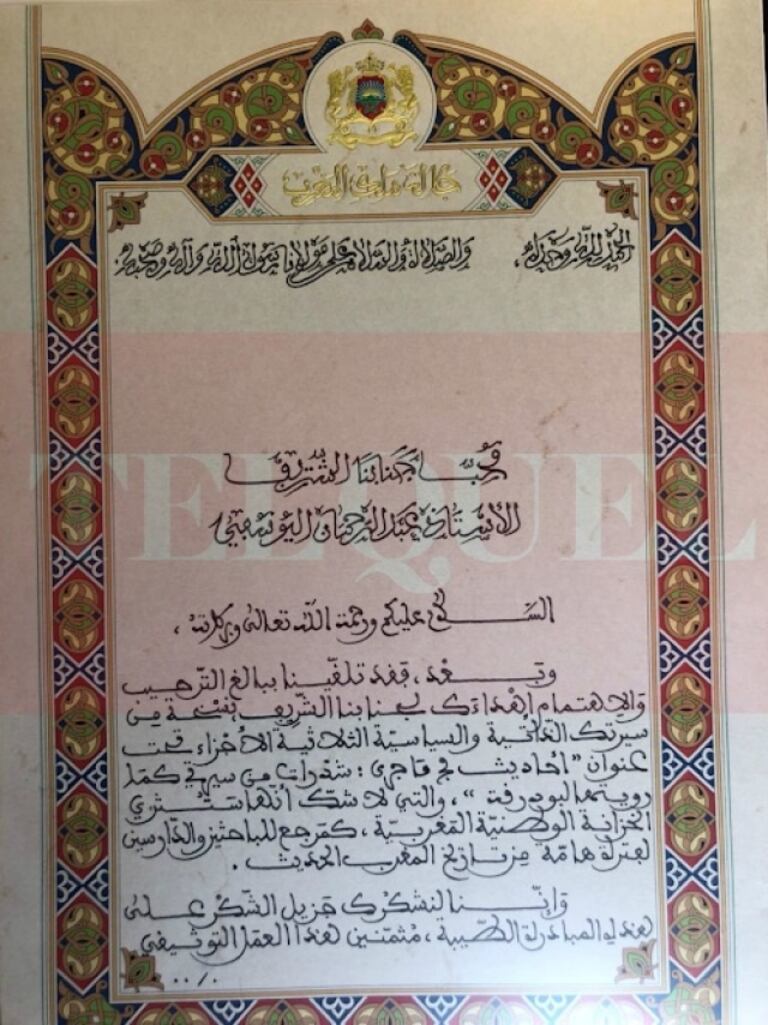 جلالة ملك المغرب
الحمد لله وحده، والصلاة والسلام على مولانا رسول الله وآله وصحبه
محب جنابنا الشريف
الأستاذ عبد الرحمان اليوسفي
السلام عليكم ورحمة الله تعالى وبركاته،
وبعد، فقد تلقينا ببالغ الترحيب
والاهتمام إهداءك لجنابنا الشريف، نسخة من
سيرتك الذاتية والسياسية الثلاثية الأجزاء تحت
عنوان "أحاديث في ما جرى: شذرات من سيرتي كما
رويتها لبودرقة"، والتي لا شك أنها ستثري
الخزانة الوطنية المغربية، كمرجع للباحثين والدارسين
لفترة هامة من تاريخ المغرب الحديث.
وإننا لنشكرك جزيل الشكر على
هذه المبادرة الطيبة، مثمنين هذا العمل التوثيقي
../.
TELQUEL